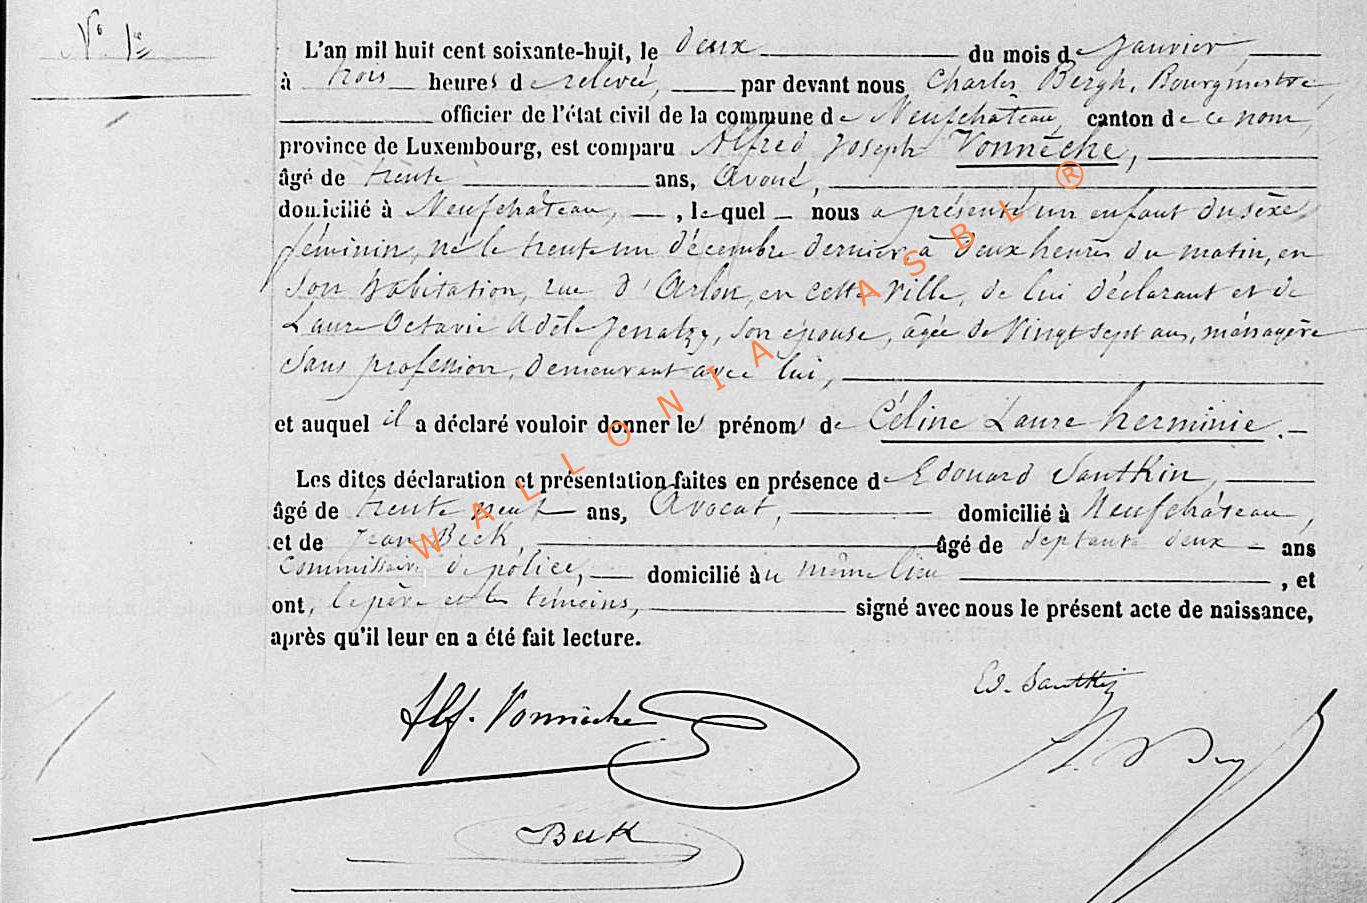 N° 1er
L'an mil huit cent soixante-huit, le deux du mois de Janvier
à trois heures de relevée, par devant nous Charles Bergh, Bourgmestre,
officier de l'état civil de la commune de Neufchâteau, canton de ce nom,
province de Luxembourg, est comparu Alfred Joseph Vonnêche,
âgé de trente ans, Avoué,
domicilié à Neufchâteau, , lequel nous a présenté un enfant du sexe
féminin, né le trente un décembre dernier, à deux heures du matin, en
son habitation, rue d'Arlon, en cette ville, de lui déclarant et de
Laure Octavie Adèle Jenatzy, son épouse, âgée de Vingt sept ans, ménagère
sans profession, demeurant avec lui,
et auquel il a déclaré vouloir donner les prénoms de Céline Laure herminie.
Les dites déclaration et présentation faites en présence de Edouard Santkin,
âgé de trente neuf ans, Avocat, domicilié à Neufchâteau,
et de Jean Beck, âgé de septante deux ans
Commissaire de police, domicilié au même lieu , et
ont, le père et les témoins, signé avec nous le présent acte de naissance,
après qu'il leur en a été fait lecture.
Ed. Santkin
Alf. Vonnêche
Beck
WALLONIA ASBL ®